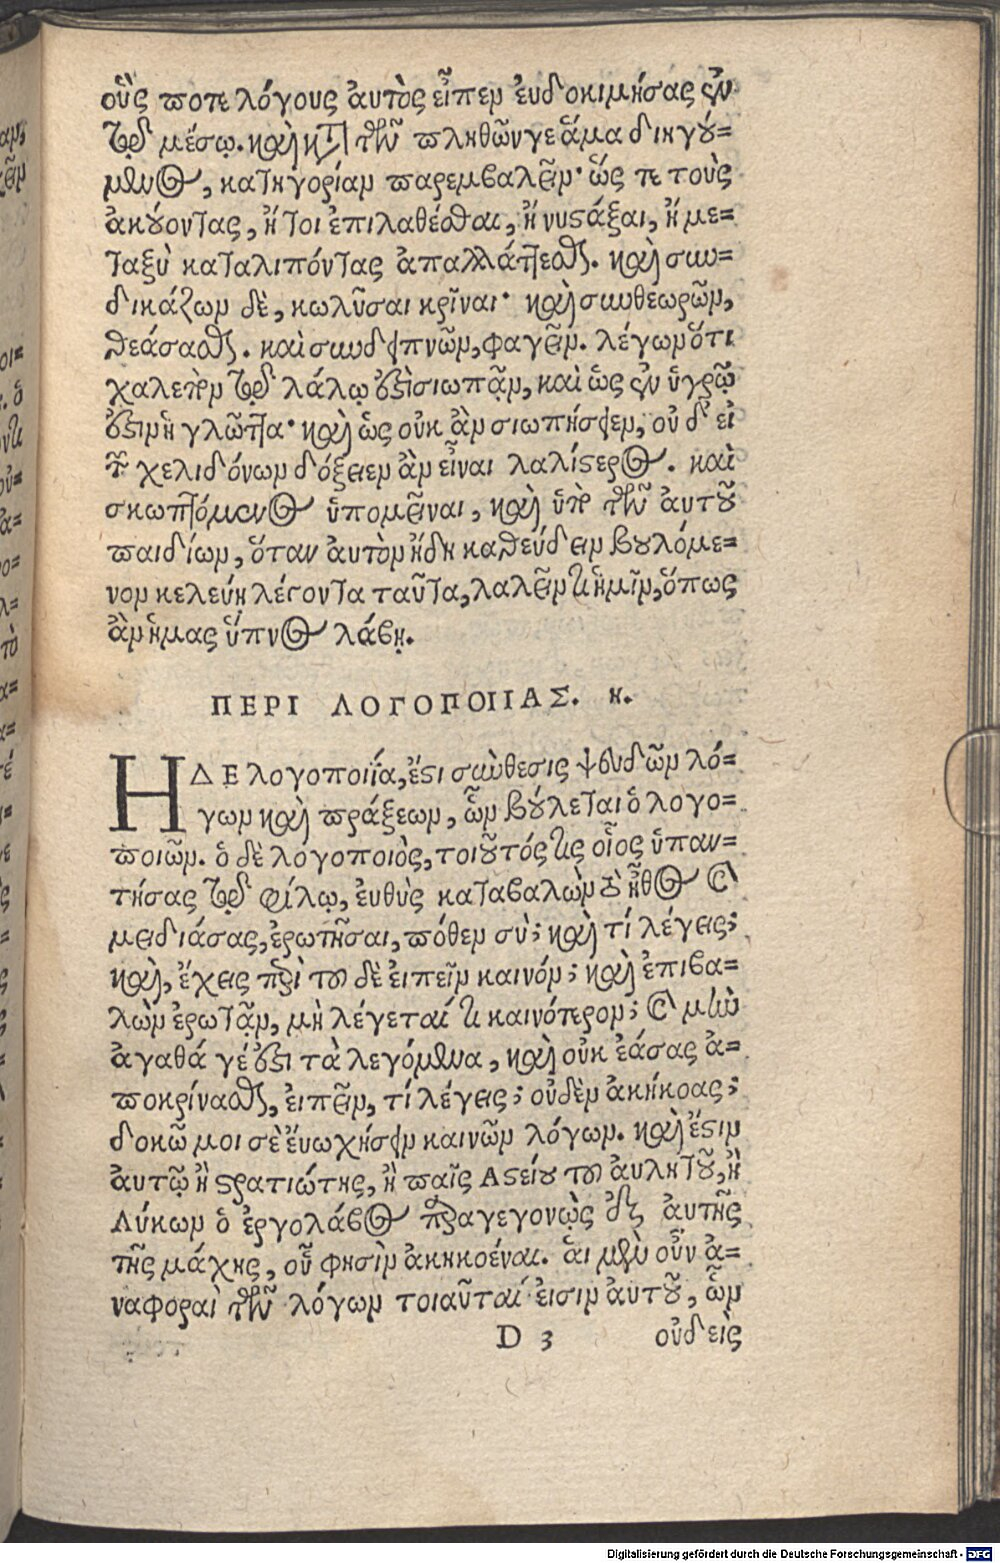 οὓς ποτε λόγους ἀυτὸς εἶπεν ἐυδοκιμήσας ἐν
τῷ μέσῳ. καὶ κτ̃ τῶν πληθῶν γε ἅμα διηγού=
μενος, κατηγορίαν παρεμβαλεῖν· ὥς τε τοὺς
ἀκούοντας, ἤτοι ἐπιλαθέσθαι, ἢ νυστάξαι, ἢ με=
ταξὺ καταλιπόντας ἀπαλλάττεσθαι. καὶ συν=
δικάζων δὲ, κωλῦσαι κρῖναι· καὶ συνθεωρῶν,
θεάσασθαι. καὶ συνδειπνῶν, φαγεῖν. λέγων ὅτι
χαλεπὸν τῷ λάλῳ ἐστὶ σιωπᾷν, καὶ ὡς ἐν ὑγρῷ
ἐστιν ἡ γλῶττα· καὶ ὡς οὐκ ἂν σιωπήσειεν, οὐδ' εἰ
τῶν χελιδόνων δόξειεν ἂν εἶναι λαλίστερος. καὶ
σκωπτόμενος ὑπομεῖναι, καὶ ὑπὸ τῶν ἀυτοῦ
παιδίων, ὅταν ἀυτὸν ἤδη καθεύδειν βουλόμε=
νον κελεύῃ λέγοντα ταῦτα, λαλεῖν τι ἡμῖν, ὅπως
ἂν ἡμας ὕπνος λάβῃ.
ΠΕΡΙ ΛΟΓΟΠΟΙΙΑΣ. η.
Η ΔΕ λογοποιΐα, ἔστι σύνθεσις ψευδῶν λό=
γων καὶ πράξεων, ὧν βούλεται ὁ λογο=
ποιῶν. ὁ δὲ λογοποιὸς, τοιοῦτός τις οἷος ὑπαν=
τήσας τῷ φίλῳ, ἐυθὺς καταβαλὼν τὸ ἦθος καὶ
μειδιάσας, ἐρωτῆσαι, πόθεν σὺ; καὶ τί λέγεις;
καὶ, ἔχεις περὶ του δὲ ἐιπεῖν καινόν; καὶ ἐπιβα=
λὼν ἐρωτᾷν, μὴ λέγεταί τι καινότερον; καὶ μὴν
ἀγαθά γέ ἐστι τὰ λεγόμενα, καὶ οὐκ ἐάσας ἀ=
ποκρίνασθαι, ἐιπεῖν, τί λέγεις; οὐδὲν ἀκήκοας;
δοκῶ μοι σὲ ἐυωχήσειν καινῶν λόγων. καὶ ἔστιν
ἀυτῷ ἢ στρατιώτης, ἢ παῖς Αστείου του ἀυλητοῦ, ἢ
Λύκων ὁ ἐργολάβος παραγεγονὼς ἐξ ἀυτῆς
τῆς μάχης, οὗ φησὶν ἀκηκοέναι. ἁι μὲν οὖν ἀ=
ναφοραὶ τῶν λόγων τοιαῦταί εἰσιν ἀυτοῦ, ὧν
D 3 οὐδεὶς
Digitalisierung gefördert durch die Deutsche Forschungsgemeinschaft - DFG